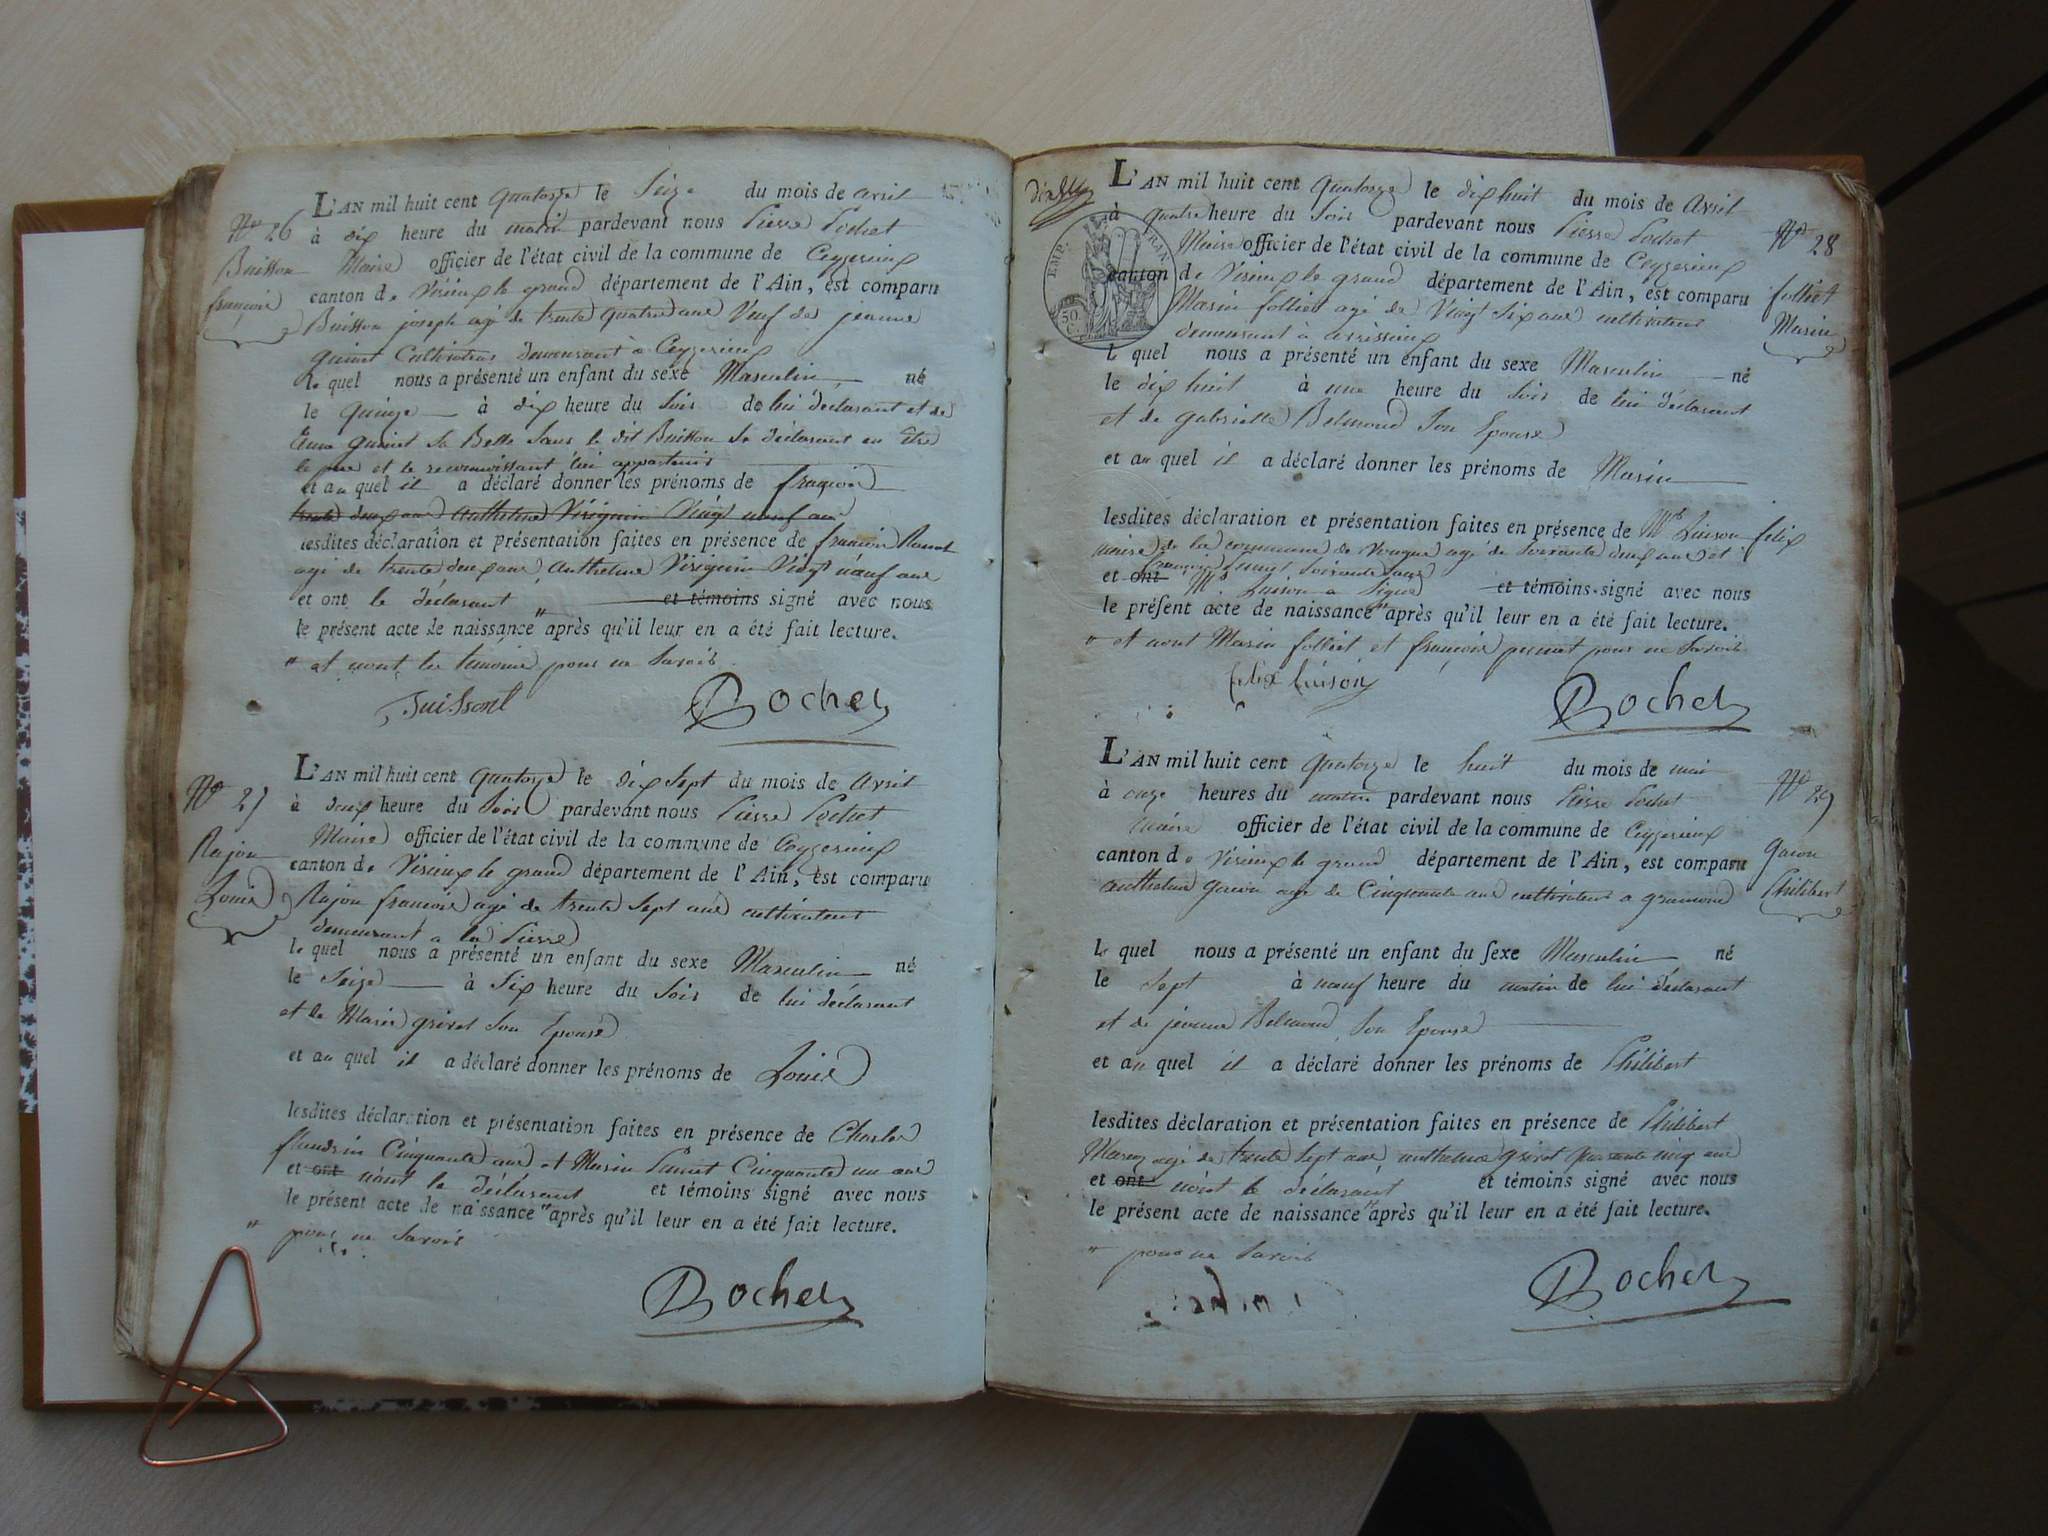 N° 26
Buisson
françois
L'AN mil huit cent quatorze le seize du mois de avril
à dix heure du matin pardevant nous Pierre Pochet
Maire officier de l'état civil de la commune de Ceyzerieux
canton de Virieux le grand département de l'Ain, est comparu
Buisson joseph agé de trente quatre ans Veuf de jeanne
guinet Cultivateur demeurant à Ceyzerieux
le quel nous a présenté un enfant du sexe Masculin né
le quinze à dix heure du soir de lui déclarant et de
guinet sa Belle Sœur le dit Buisson se déclarant en être
le père et le reconnoissant lui appartenir
et au quel il a déclaré donner les prénoms de françois
trente deux ans Anthelme Viriguin Vingt neuf ans
lesdites déclaration et présentation faites en présence de françois
agé de trente deux ans, Anthelme Viriguin Vingt neuf ans
et ont le déclarant " et témoins signé avec nous
le présent acte de naissance " après qu'il leur en a été fait lecture.
" et nont les temoins pour ne savoir
Buisson Pochet
N° 27
Rajon
Louis
L'AN mil huit cent quatorze le dix sept du mois de avril
à deux heure du soir pardevant nous Pierre Pochet
Maire officier de l'état civil de la commune de Ceyzerieux
canton de Virieux le grand département de l'Ain, est comparu
Rajon francois agé de trente sept ans cultivateur
demeurant a la Pierre
le quel nous a présenté un enfant du sexe Masculin né
le seize à six heure du soir de lui déclarant
et de Marie grivet son Epouse
et au quel il a déclaré donner les prénoms de Louis
lesdites déclaration et présentation faites en présence de Charles
flandrin Cinquante ans et Marin Cinquante un ans
et ont n'ont le déclarant et témoins signé avec nous
le présent acte de naissance " après qu'il leur en a été fait lecture.
" pour ne savoir
Pochet
EMP. FRAN.
50 C.
N° 28
folliet
Marin
L'AN mil huit cent quatorze le dix huit du mois de Avril
à quatre heure du soir pardevant nous Pierre Pochet
Maire officier de l'état civil de la commune de Ceyzerieux
canton de Virieux le grand département de l'Ain, est comparu
Marin folliet agé de Vingt six ans cultivateur
demeurant à avrissieux
le quel nous a présenté un enfant du sexe Masculin né
le dix huit à une heure du soir de lui déclarant
et de gabrielle Belmond son Epouse
et au quel il a déclaré donner les prénoms de Marin
lesdites déclaration et présentation faites en présence de Mr Luison felix
maire de la commune de agé de soixante deux ans et
françois soixante ans
et ont Mr Luison a signé et témoins signé avec nous
le présent acte de naissance " après qu'il leur en a été fait lecture.
" et nont Marin folliet et françois pour ne savoir
felix luison Pochet
N° 29
gacon
Philibert
L'AN mil huit cent quatorze le huit du mois de mai
à onze heures du matin pardevant nous Pierre Pochet
maire officier de l'état civil de la commune de Ceyzerieux
canton de Virieux le grand département de l'Ain, est comparu
anthelme agé de Cinquante ans cultivateur a gramond
le quel nous a présenté un enfant du sexe Masculin né
le sept à neuf heure du matin de lui déclarant
et de jeanne Belmond son Epouse
et au quel il a déclaré donner les prénoms de Philibert
lesdites déclaration et présentation faites en présence de Philibert
agé de trente sept ans, anthelme grivet quarante cinq ans
et ont n'ont le déclarant et témoins signé avec nous
le présent acte de naissance " après qu'il leur en a été fait lecture.
" pour ne savoir
Pochet